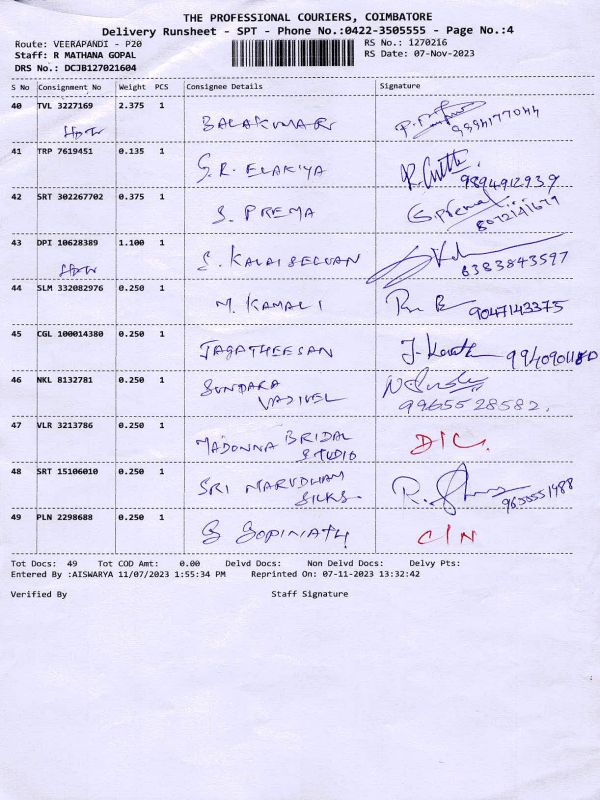 THE PROFESSIONAL COURIERS, COIMBATORE
Delivery Runsheet - SPT - Phone No.:0422-3505555 - Page No.:4
Route: VEERAPANDI - P20
RS No.: 1270216
Staff: R MATHANA GOPAL
RS Date: 07-Nov-2023
DRS No.: DCJB127021604
S No Consignment No Weight PCS Consignee Details Signature
40 TVL 3227169 2.375 1
BALAKUMAR
9994177044
41 TRP 7619451 0.135 1
S.R. ELAKIYA
9894912939
42 SRT 302267702 0.375 1
S. PREMA
S.Prema
8072141679
43 DPI 10628389 1.100 1
S. KALAISELVAN
8383843597
44 SLM 332082976 0.250 1
M. KAMALI
9047143375
45 CGL 100014380 0.250 1
JAGATHEESAN
46 NKL 8132781 0.250 1
SUNDARA
VADIVEL
9965528582.
47 VLR 3213786 0.250 1
MADONNA BRIDAL
STUDIO
D/C.
48 SRT 15106010 0.250 1
SRI MARUDHAM
SILKS.
9655551488
49 PLN 2298688 0.250 1
G GOPINATH
C/N
Tot Docs: 49 Tot COD Amt: 0.00 Delvd Docs: Non Delvd Docs: Delvy Pts:
Entered By :AISWARYA 11/07/2023 1:55:34 PM Reprinted On: 07-11-2023 13:32:42
Verified By Staff Signature